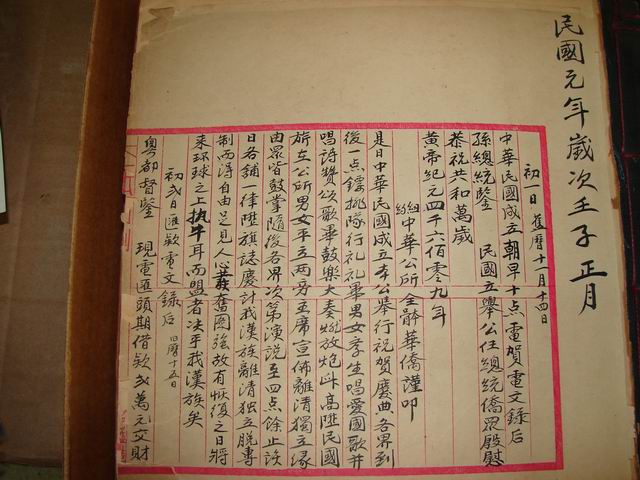 民國元年歲次壬子正月
初一日 舊曆十一月十四日
中華民國成立朝早十点電賀電文錄后
孫總統鑒 民國立舉公任總統僑眾殷慰
恭祝共和萬歲
黃帝紀元四千六佰零九年
中華公所全僑謹叩
是日中華民國成立本公舉行祝賀慶典各界到
後一点鐘排隊行礼礼畢男女學生唱愛國歌并
唱詩贊頌歌畢鼓樂大奏炮放炮竹高陞民國
旂在公所男女平立兩旁主席宣佈離清獨立緣
由眾皆鼓掌隨後各界次第演說至四点餘止該
日各舖一律陞旗誌慶計我漢族離清獨立脫專
制而得自由足見人心奮圖強故有恢復之日將
來環球之上执牛耳而盟者决乎我漢族矣
初弍日匯欵電文錄后 旧曆十五日
粵都督鑒 現電匯頭期借欵弍萬元交財